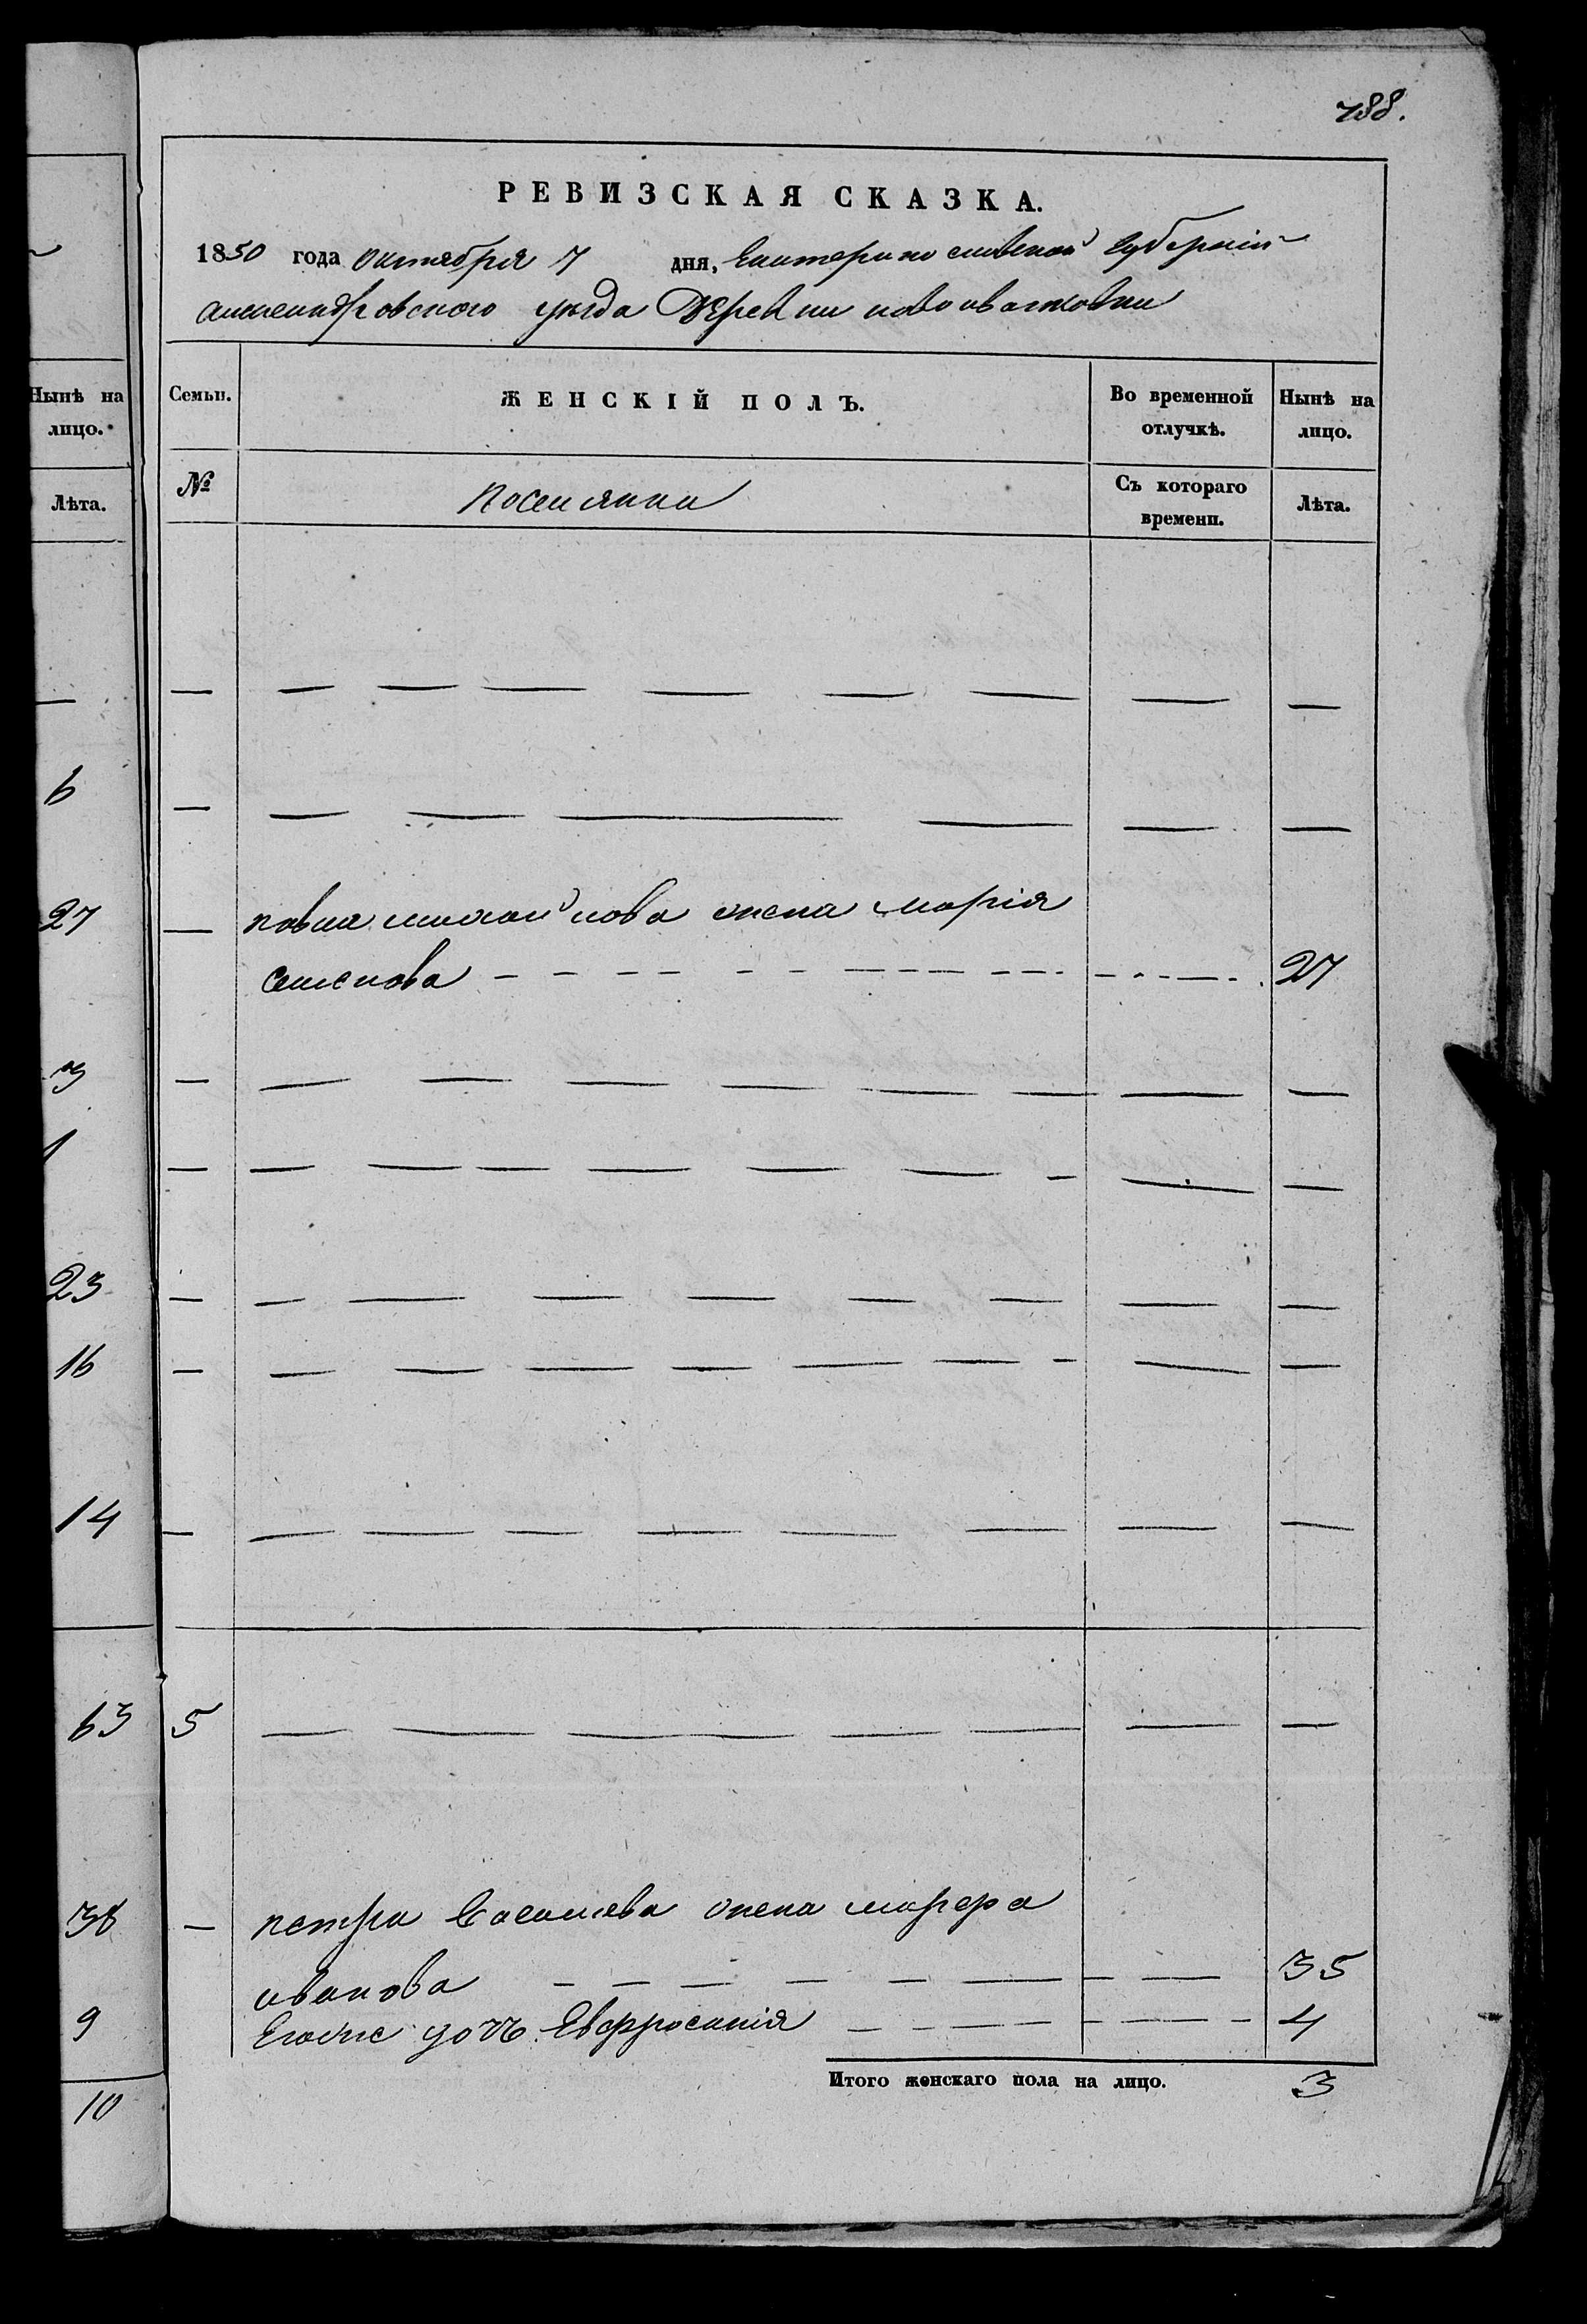 788.
РЕВИЗСКАЯ СКАЗКА.
1850 года октября 7 дня, Екатеринославской Губерніи
александровского уезда Деревни новоивановки
Нынѣ на лицо.
Семьи. ЖЕНСКІЙ ПОЛЪ. Во временной отлучкѣ. Нынѣ на лицо.
Лѣта.
№ поселянки Съ котораго времени. Лѣта.
— — — — — — — — —
6 — — — — — — —
27 — павла михайлова жена марія
семенова — — — — 27
3 — — — — — — — — —
1 — — — — — — — — —
23 — — — — — — — — —
16 — — — — — — — — —
14 — — — — — — — — —
63 5 — — — — — — —
38 — петра жена марфа
иванова — — — — 35
9 Егоже дочь Евфросинія — — — 4
Итого женскаго пола на лицо. 3
10